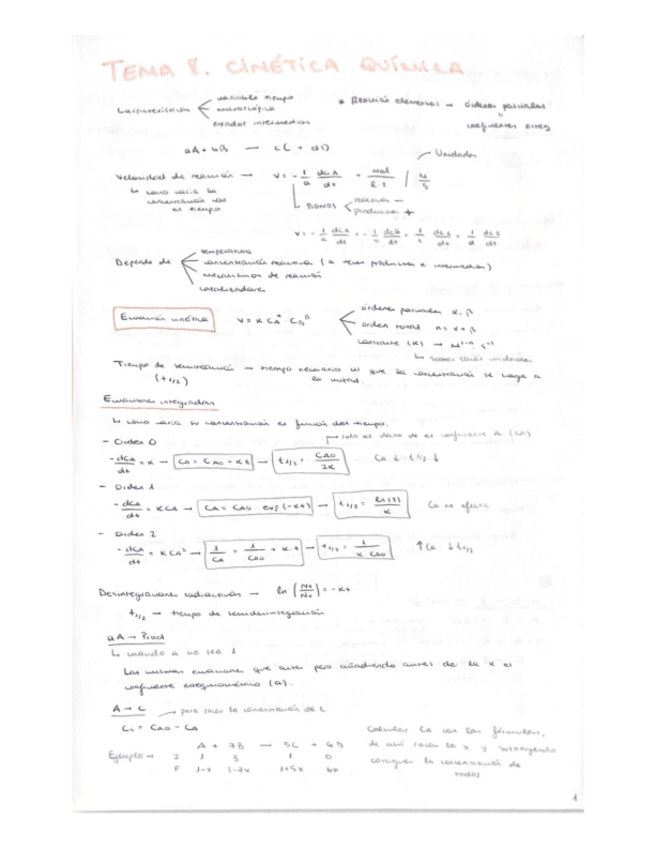 TEMA 8. CINÉTICA QUÍMICA
variable tiempo
Características
microscópica
estados intermedios
* Reacción elemental → órdenes parciales
coeficientes esteq
aA + bB → cC + dD
Unidades
Velocidad de reacción → v = - 1/a dCA/dt = mol/l·s | M/s
↳ como varía la concentración con el tiempo
↳ signos
reactivos -
productos +
v = - 1/a dCA/dt = - 1/b dCB/dt = 1/c dCC/dt = 1/d dCD/dt
Depende de
temperatura
concentración reactivos (a veces productos e intermedios)
mecanismos de reacción
catalizadores
Ecuación cinética
v = k CA^α · CB^β
órdenes parciales α, β
orden total n = α + β
constante (k) → M^1-n s^-1
↳ saber sacar unidades
Tiempo de semirreacción → tiempo necesario en que la concentración se haga a la mitad.
(t1/2)
Ecuaciones integradas
↳ como varía su concentración en función del tiempo.
- Orden 0
solo el dato de el coeficiente A (CA)
- dCA/dt = k → CA = CA0 - kt → t1/2 = CA0/2k
CA ↓ t1/2 ↓
- Orden 1
- dCA/dt = k CA → CA = CA0 · exp(-kt) → t1/2 = ln(2)/k
CA no afecta
- Orden 2
- dCA/dt = k CA² → 1/CA = 1/CA0 + k·t → t1/2 = 1/k·CA0
↑CA ↓t1/2
Desintegraciones radiactivas → ln = -kt
t1/2 → tiempo de semidesintegración
aA → Prod
↳ cuando a no sea 1
Las mismas ecuaciones que antes pero añadiendo antes de la k el
coeficiente estequiométrico (a).
A → C
para sacar la concentración de C
CC = CA0 - CA
Calcular CA con las fórmulas,
de ahí sacar la x y sustituyendo
consigues la concentración de
todos
A + 7B → 5C + 6D
Ejemplo → I 1 3 1 0
F 1-x 1+5x 6x
1